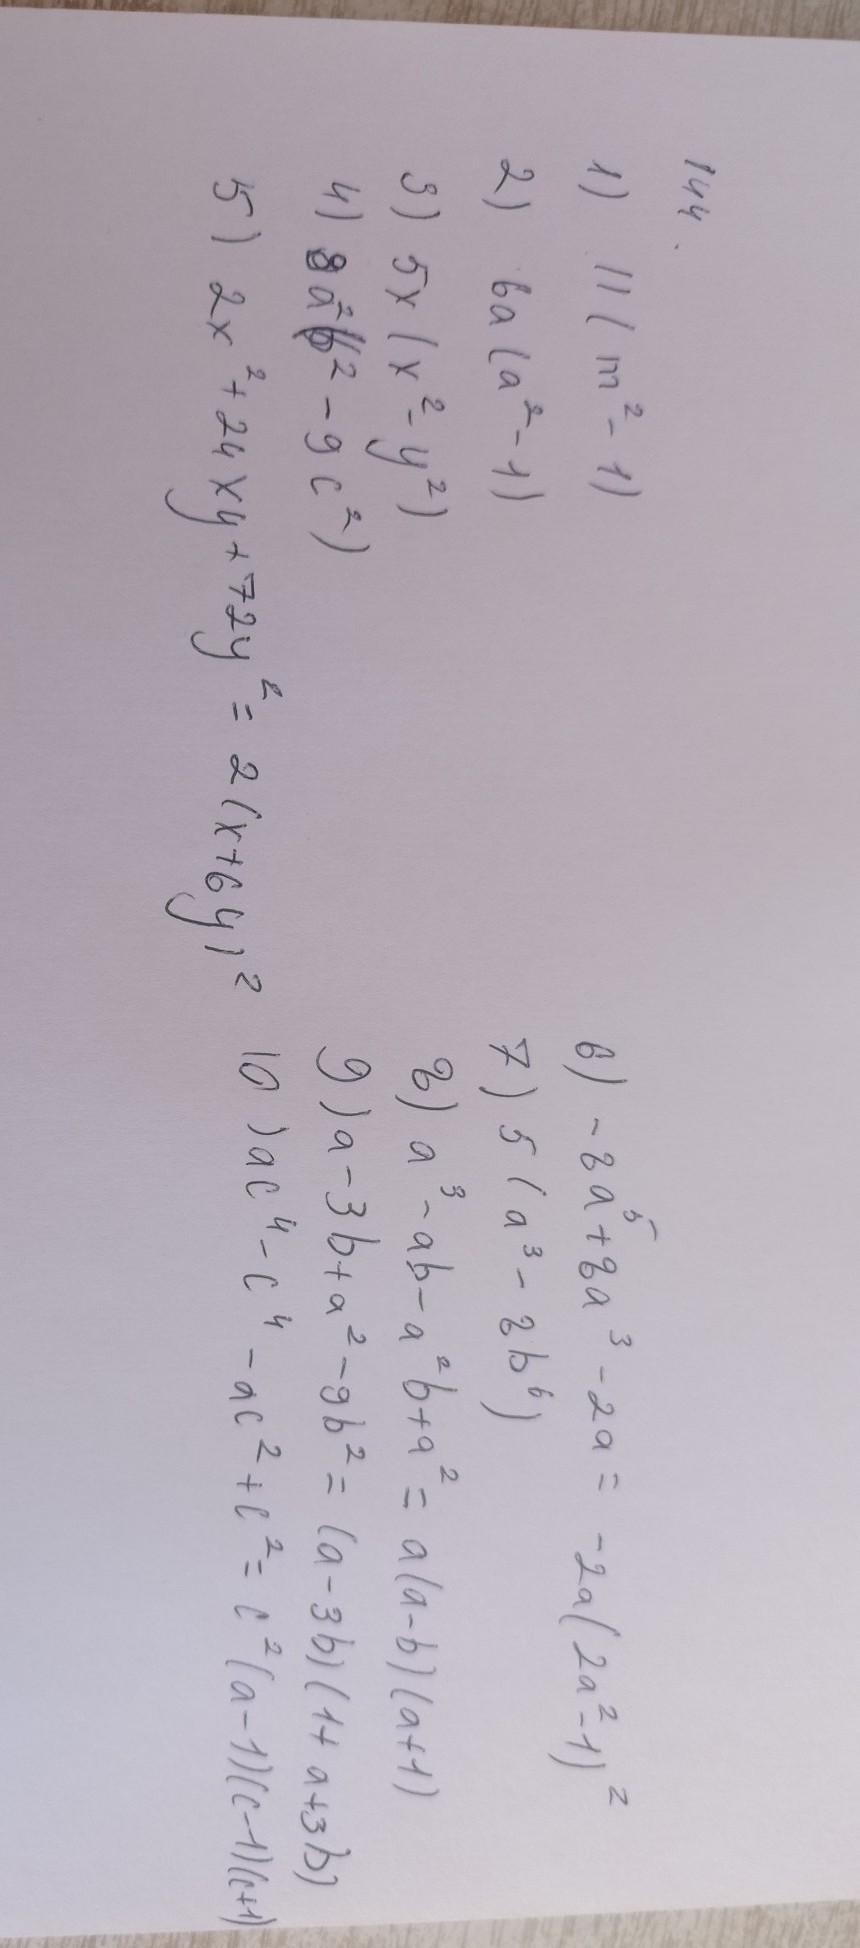 144.
1) 11(m²-1)
2) 6a(a²-1)
3) 5x(x²-y²)
4) a²(b²-9c²)
5) 2x²+24xy+72y²=2(x+6y)²
6) -8a⁵+8a³-2a=-2a(2a²-1)²
7) 5(a³-8b⁶)
8) a³-ab-a²b+a²=a(a-b)(a+1)
9) a-3b+a²-9b²=(a-3b)(1+a+3b)
10) ac⁴-c⁴-ac²+c²=c²(a-1)(c-1)(c+1)